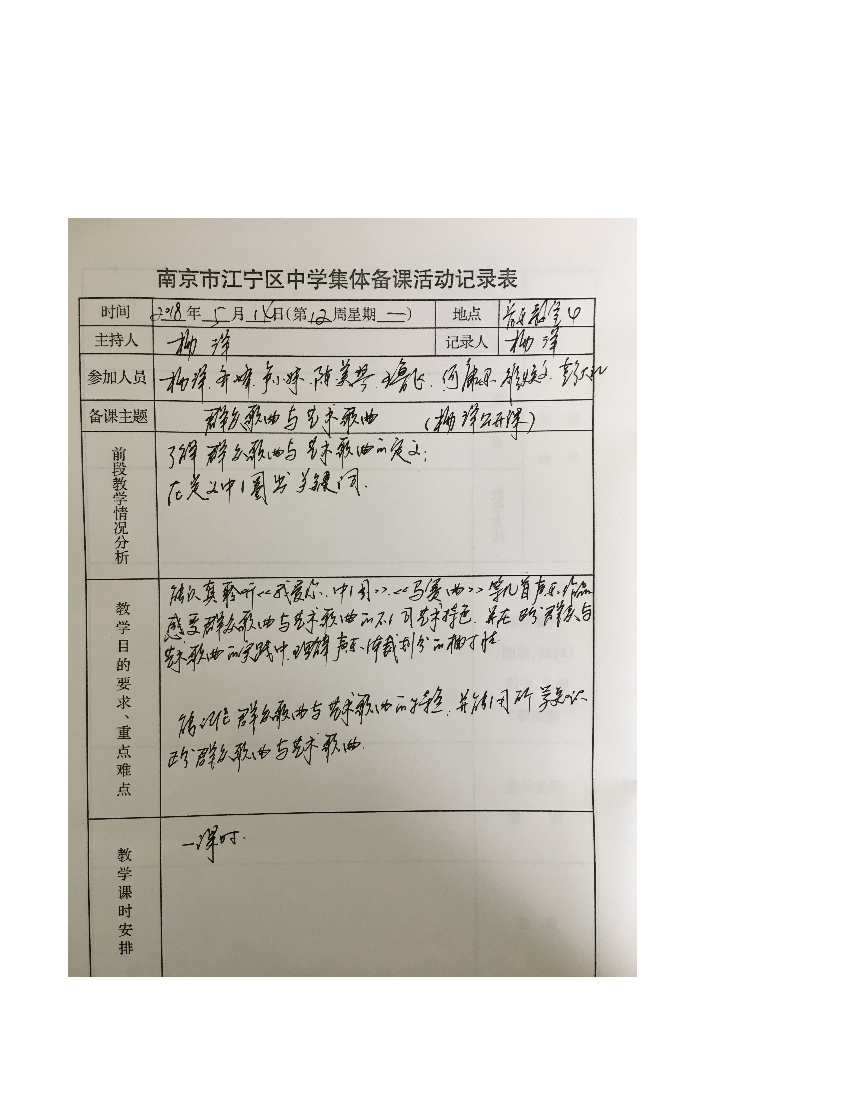 南京市江宁区中学集体备课活动记录表
时间 2018年5月14日(第12周星期一) 地点 音乐教室4
主持人 杨洋 记录人 杨洋
参加人员 杨洋
备课主题 群众歌曲与艺术歌曲 (杨洋公开课)
前段教学情况分析
了解群众歌曲与艺术歌曲的定义;
在定义中圈出关键词.
教学目的要求、重点难点
能认真聆听《我爱你,中国》、《马赛曲》等几首声乐作品
感受群众歌曲与艺术歌曲的不同艺术特色.并在区分群众与
艺术歌曲的实践中,理解声乐体裁划分的相对性.
能记住群众歌曲与艺术歌曲的特色,并能用所学知识
区分群众歌曲与艺术歌曲.
教学课时安排
一课时.